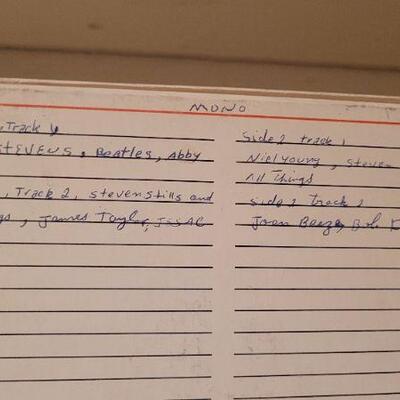 MONO
, Track 1
STEVENS, Beatles, Abby
, Track 2, Steven Stills and
gs, James Taylor, ISSAC
Side 2 track 1
Niel young, Steven
All Things
Side 2 Track 2
Joan Baeze, Bob